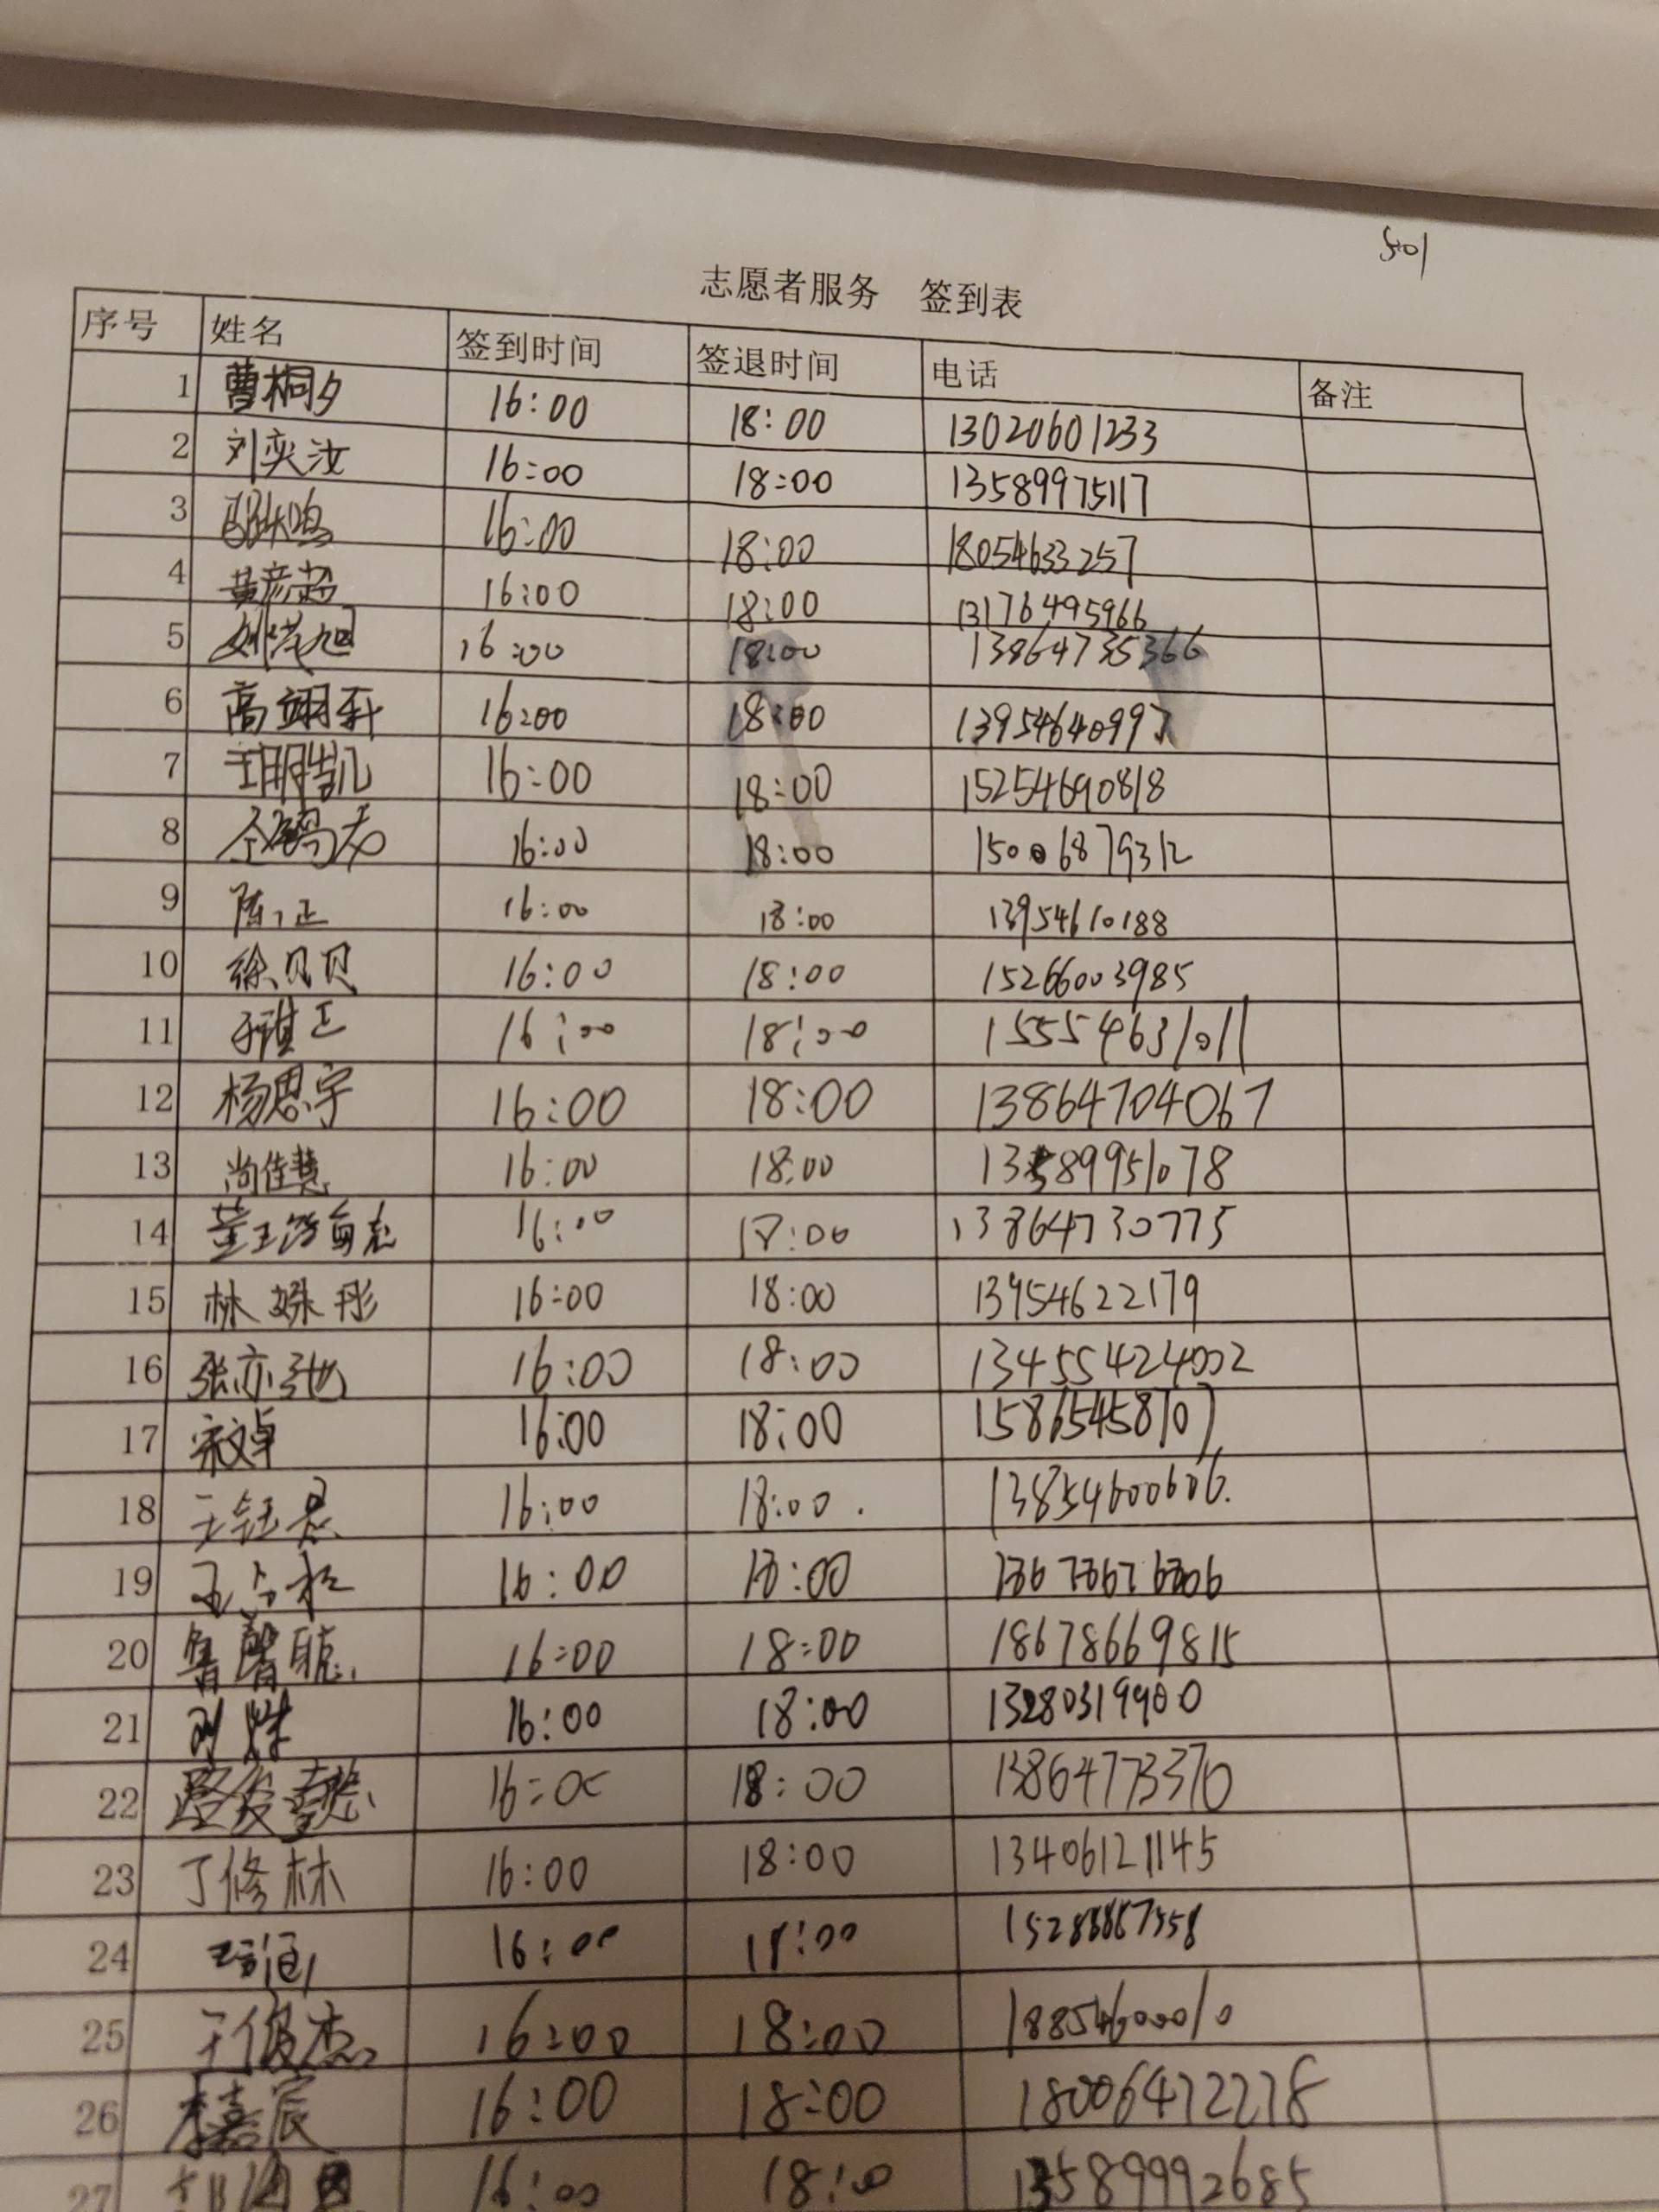 501
志愿者服务 签到表
序号 姓名 签到时间 签退时间 电话 备注
1 曹桐夕 16:00 18:00 13020601233
2 刘奕汝 16:00 18:00 13589975117
3 16:00 18:00 18054633257
4 黄彦超 16:00 18:00 13176495966
5 16:00 18:00 13864735366
6 高翊轩 16:00 18:00 13954640997
7 16:00 18:00 15254690818
8 16:00 18:00 15006879312
9 陈正 16:00 18:00 13954610188
10 徐贝贝 16:00 18:00 15266003985
11 于祺正 16:00 18:00 15554631011
12 杨思宇 16:00 18:00 13864704067
13 尚佳慧 16:00 18:00 13589951078
14 16:00 18:00 13864730775
15 林姝彤 16:00 18:00 13954622179
16 张亦弛 16:00 18:00 13455424002
17 宋文卓 16:00 18:00 15865458707
18 16:00 18:00. 13854600606.
19 16:00 18:00
20 鲁馨聪 16:00 18:00 18678669815
21 16:00 18:00 13280319900
22 16:00 18:00 13864773370
23 丁修林 16:00 18:00 13406121145
24 16:00 18:00
25 于俊杰 16:00 18:00 18854600010
26 李嘉宸 16:00 18:00 18006472278
27 16:00 18:00 13589992685